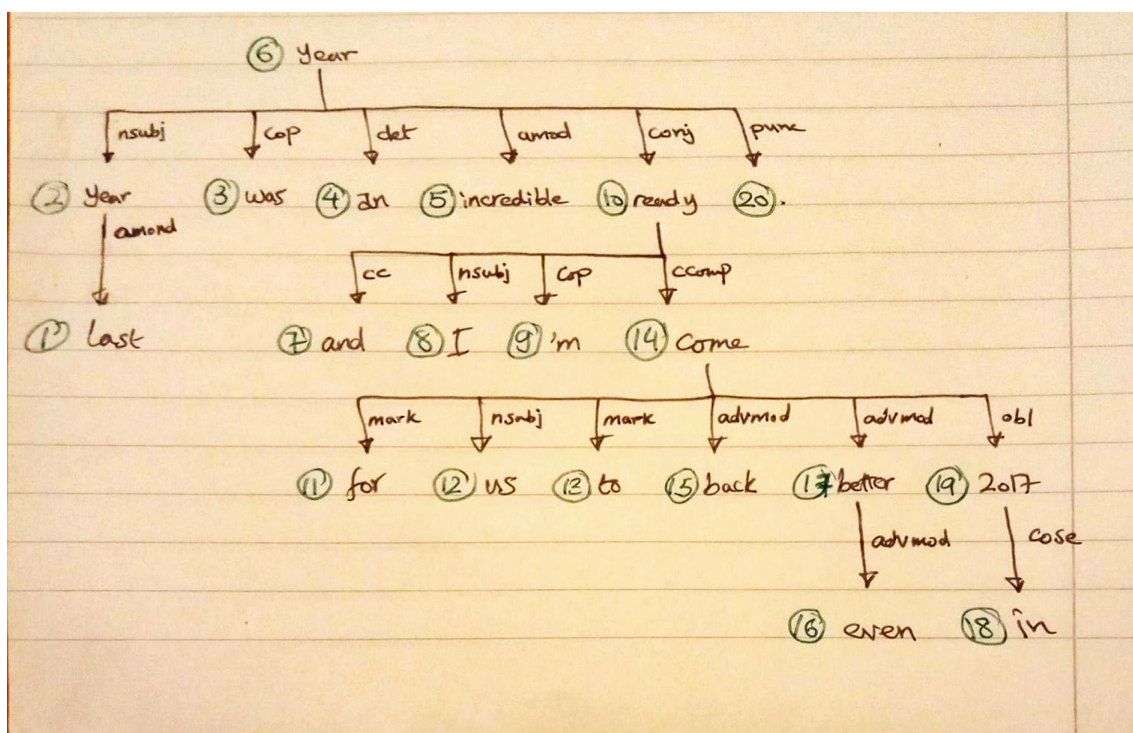 6 year
nsubj cop det amod conj punc
2 year 3 was 4 an 5 incredible 10 ready 20 .
amond
cc nsubj cop ccomp
1 last 7 and 8 I 9 'm 14 come
mark nsubj mark advmod advmod obl
11 for 12 us 13 to 15 back 17 better 19 2017
advmod cose
16 even 18 in